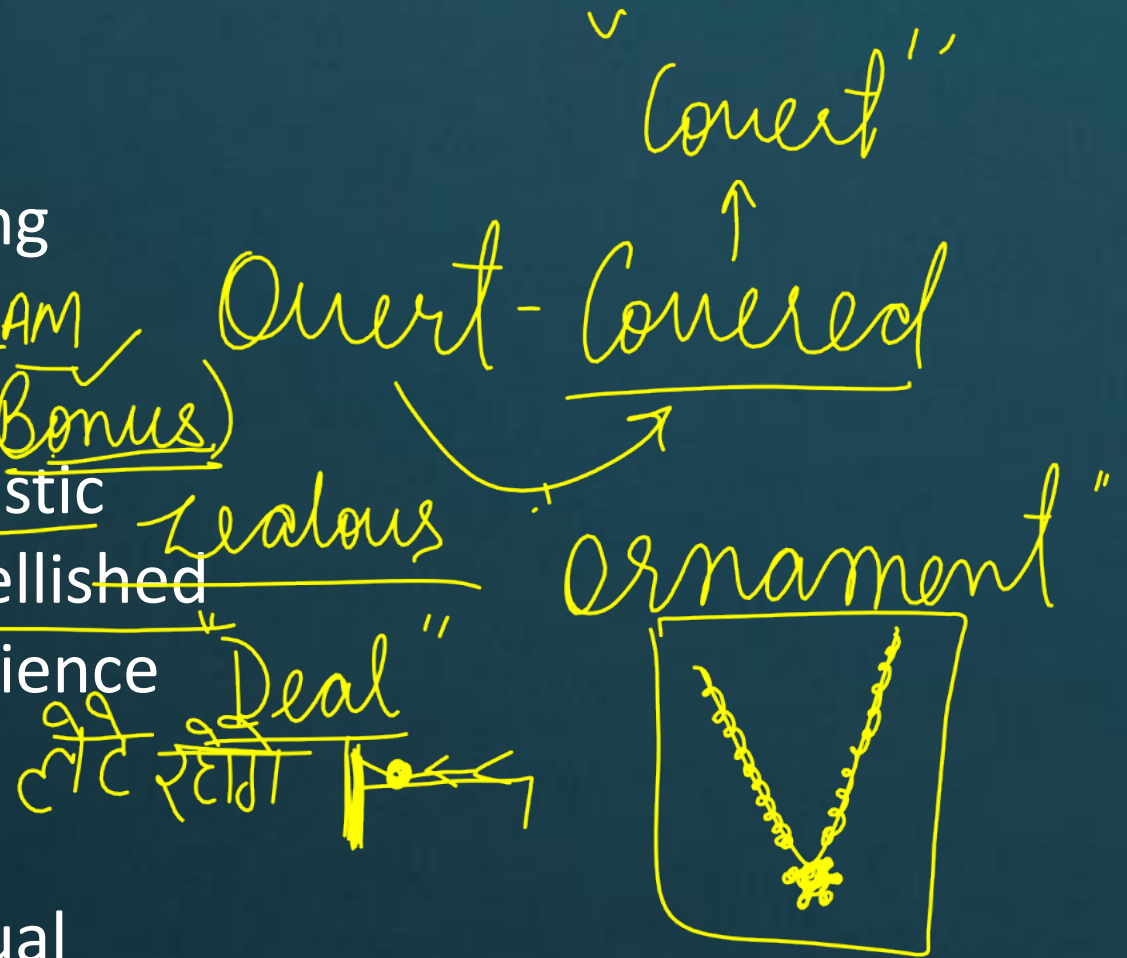 "Covert"
ng
AM
Overt - Covered
(Bonus)
stic - Zealous
ellished
Ornament"
ience "Deal"
लेटे रहोगे
ual